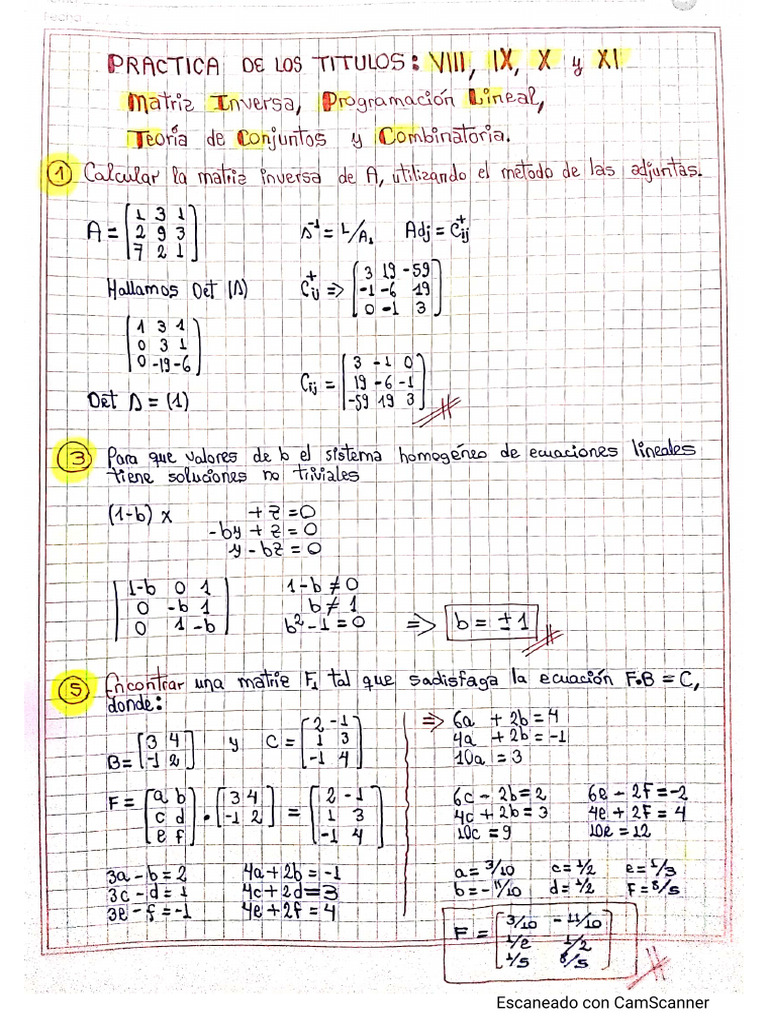 Fecha
PRACTICA DE LOS TITULOS: VIII, IX, X y XI
Matriz Inversa, Programación Lineal,
Teoría de Conjuntos y Combinatoria.
1 Calcular la matriz inversa de A, utilizando el metodo de las adjuntas.
A = [1 3 1
2 9 3
7 2 1]
A⁻¹ = 1/A, Adj = C⁺ij
Hallamos Det (A)
C⁺ij => [3 19 -59
-1 -6 19
0 -1 3]
[1 3 1
0 3 1
0 -19 -6]
Det A = (1)
Cij = [3 -1 0
19 -6 -1
-59 19 3]
3 Para que valores de b el sistema homogéneo de ecuaciones lineales
tiene soluciones no triviales
(1-b) x + z = 0
-by + z = 0
y - bz = 0
|1-b 0 1
0 -b 1
0 1 -b|
1-b ≠ 0
b ≠ 1
b² - 1 = 0 => b = ± 1
5 Encontrar una matriz F, tal que sadisfaga la ecuación F•B = C,
donde:
B = [3 4
-1 2]
y C = [2 -1
1 3
-1 4]
F = [a b
c d
e f] • [3 4
-1 2] = [2 -1
1 3
-1 4]
3a - b = 2 4a + 2b = -1
3c - d = 1 4c + 2d = 3
3e - f = -1 4e + 2f = 4
=> 6a + 2b = 4
4a + 2b = -1
10a = 3
6c - 2b = 2 6e - 2f = -2
4c + 2b = 3 4e + 2f = 4
10c = 9 10e = 12
a = 3/10 c = 1/2 e = 1/3
b = -11/10 d = 1/2 F = 8/5
F = [3/10 -11/10
1/e 1/2
1/5 8/5]
Escaneado con CamScanner